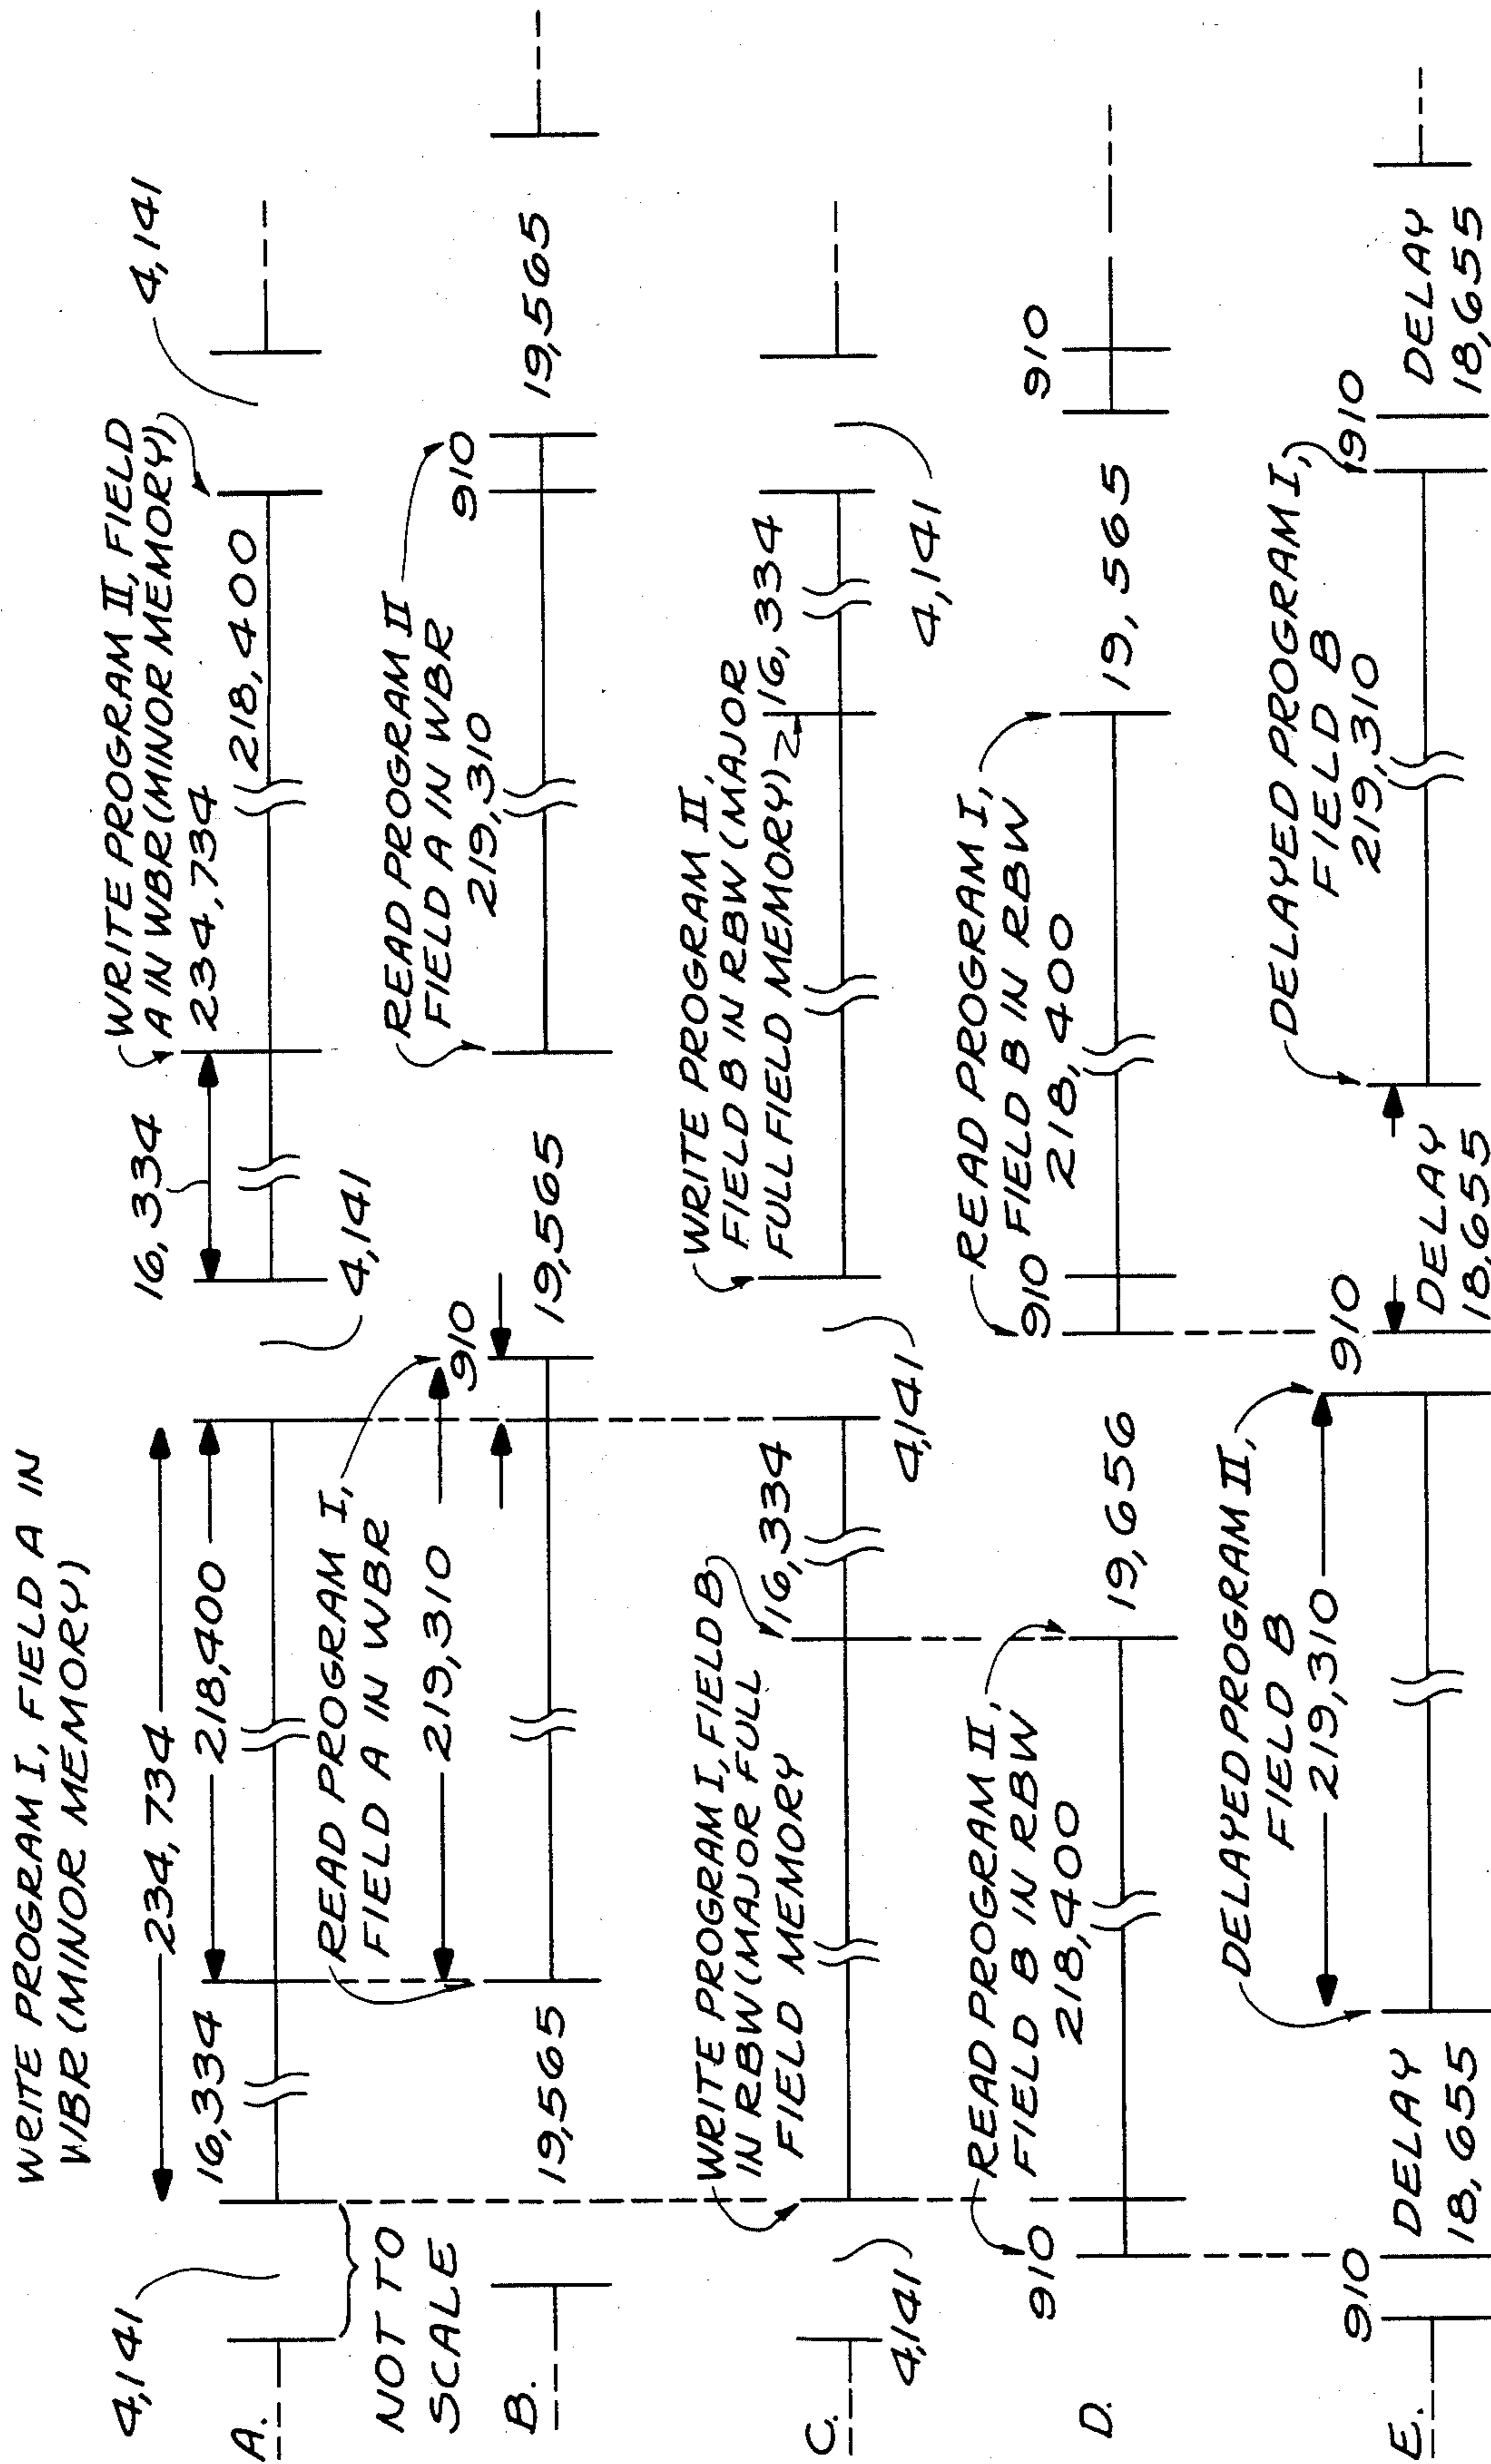 WRITE PROGRAM I, FIELD A IN
WBR (MINOR MEMORY)
WRITE PROGRAM II, FIELD
A IN WBR (MINOR MEMORY)
4,141
234,734
16,334
234,734
4,141
16,334
218,400
218,400
A.
4,141
NOT TO
SCALE
READ PROGRAM I,
FIELD A IN WBR
219,310
910
READ PROGRAM II
FIELD A IN WBR
219,310
910
B.
19,565
19,565
19,565
WRITE PROGRAM I, FIELD B
IN RBW (MAJOR FULL
FIELD MEMORY
16,334
WRITE PROGRAM II,
FIELD B IN RBW (MAJOR
FULL FIELD MEMORY)
16,334
C.
4,141
4,141
4,141
READ PROGRAM II,
FIELD B IN RBW
218,400
910
READ PROGRAM I,
FIELD B IN RBW
218,400
910
910
D.
19,656
19,565
DELAYED PROGRAM II,
FIELD B
219,310
DELAYED PROGRAM I,
FIELD B
219,310
910
910
910
E.
DELAY
18,655
DELAY
18,655
DELAY
18,655